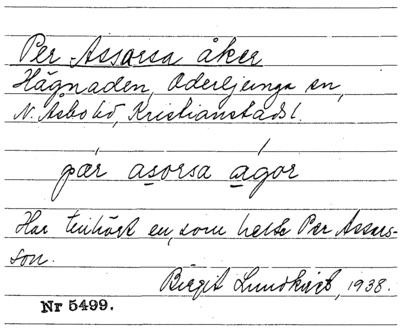 Per Assarsa åker
Hägnaden, Oderljunga sn,
N. Åsbo hd, Kristianstads l.
pær asorsa ågor
Har tillhört en, som hette Per Assars-
son.
Birgit Lundkvist, 1938.
Nr 5499.